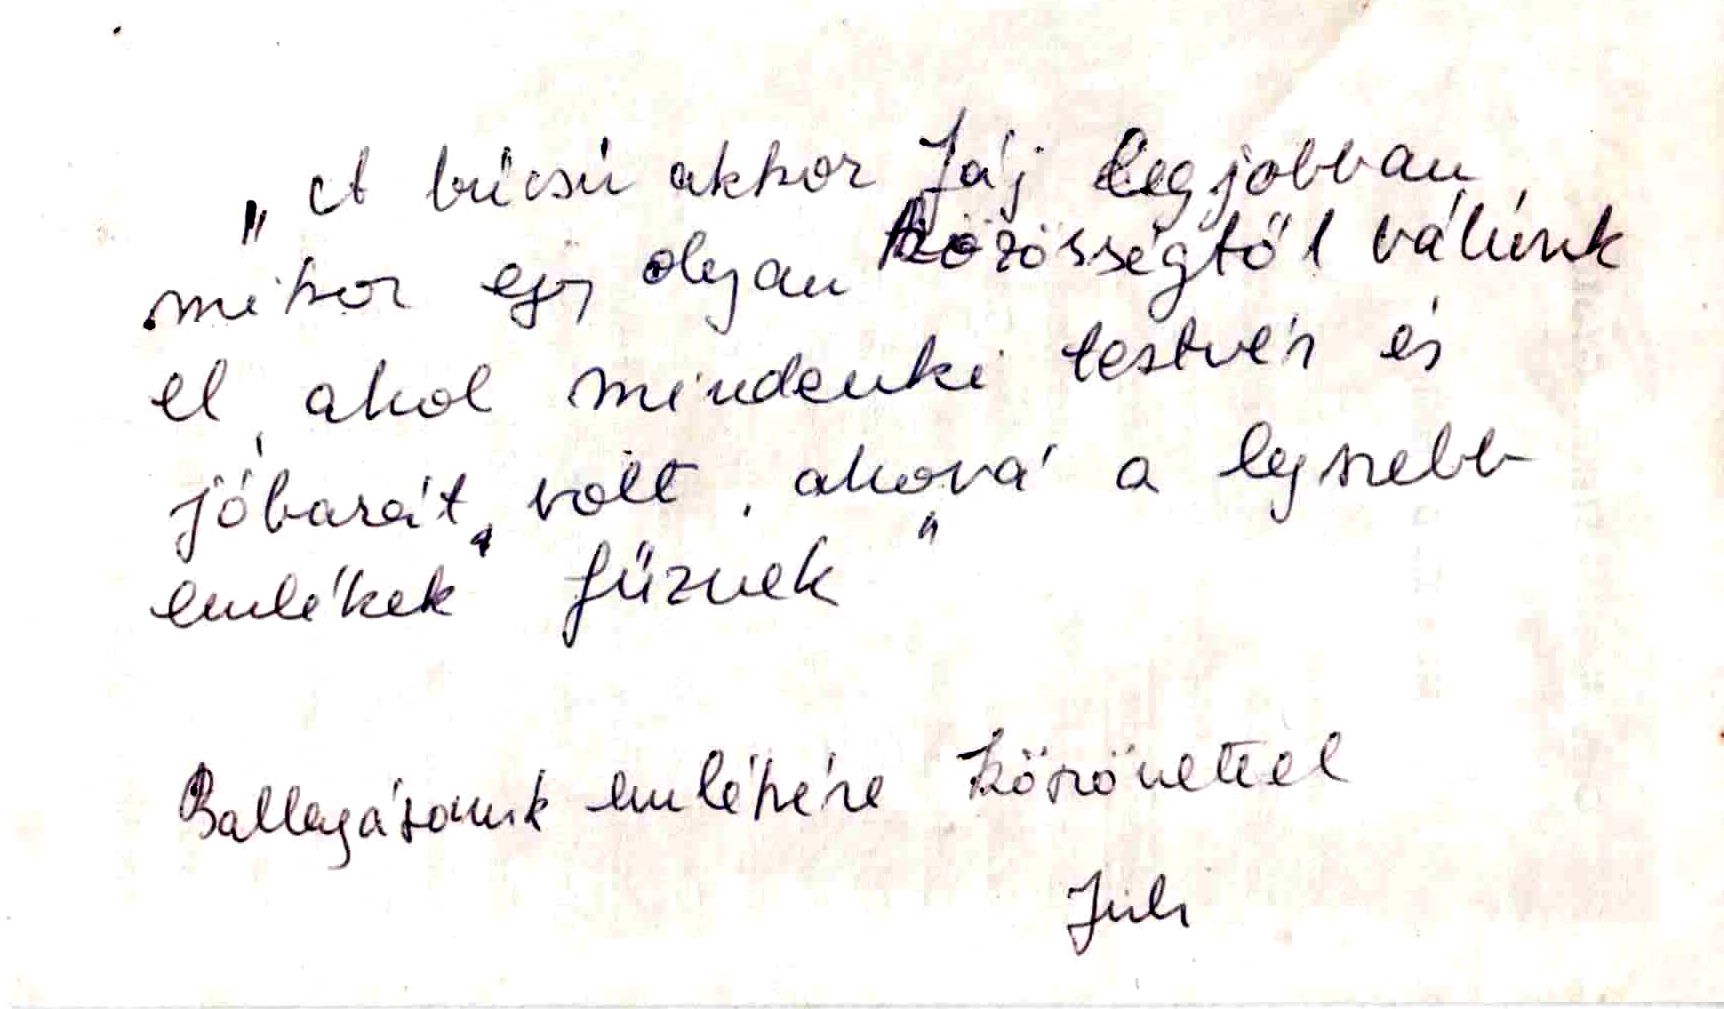 „A búcsú akkor fáj legjobban,
mikor egy olyan közösségtől válunk
el, ahol mindenki testvér és
jóbarát volt, ahová a legszebb
emlékek fűznek"
Ballagásomk emlékére köszönettel